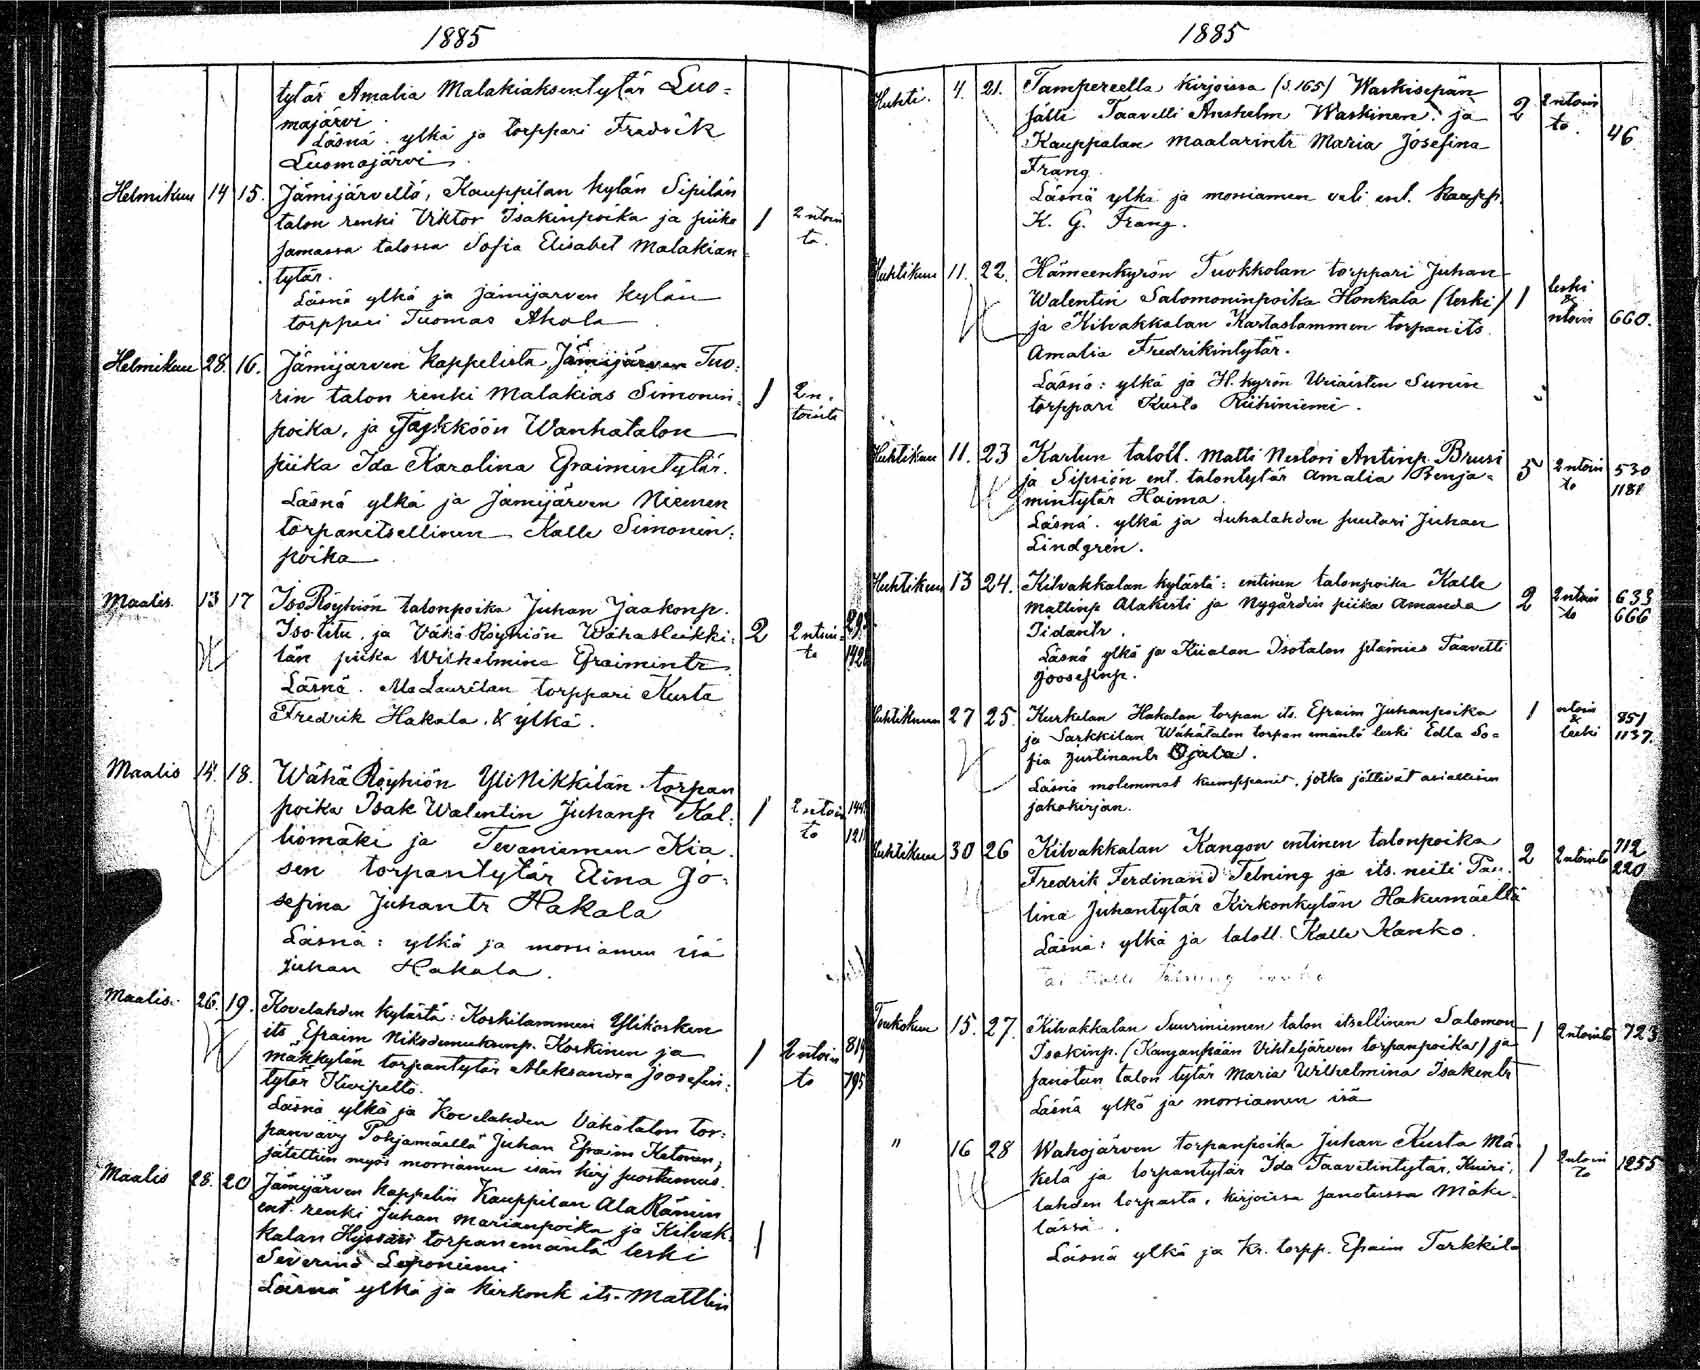 1885
tytär Amalia Malakiaksentytär Luo=
majärvi.
Läsnä. ylkä ja torppari Fredrik
Luomajärvi
Helmikuu 14 15. Jämijärveltä, Kauppilan kylän Sipilän
talon renki Viktor Isakinpoika ja piika 1 2 ntoin
samassa talossa Sofia Elisabet Malakian= to.
tytär.
Läsnä ylkä ja Jämijärven kylän
torppari Tuomas Ahola
Helmikuu 28. 16. Jämijärven kappelista, Jämijärven Tuo=
rin talon renki Malakias Simonin= 1 2 n.
poika, ja Wanhatalon tointo
piika Ida Karolina Efraimintytär.
Läsnä ylkä ja Jämijärven Niemen
torpanitsellinen Kalle Simonin=
poika
Maalis. 13 17 Iso Röyhiön talonpoika Juhan Jaakonp.
Iso-titu, ja Vähä Röyhiön 2 2 ntoin=
län piika Wilhelmina Efraimintr. to
Läsnä. Ala Laurilan torppari Kusta
Fredrik Hakala. & ylkä.
Maalis 14. 18. Wähä Röyhiön YliNikkilän torpan
poika Isak Walentin Juhanp Kal= 1 2 ntoin
liomäki ja Tevaniemen Kia= to
sen torpantytär Elina Jo=
sefina Juhantr Hakala
Läsnä: ylkä ja morsiamen isä
Juhan Hakala.
Maalis. 26. 19. Kovelahden kylästä: Koskilammin Ylikosken
its Efraim Nikodemuksenp. Koskinen ja 1 2 ntoin 819
mäkkylän torpantytär Aleksandra Joosefin= to 795
tytär Kivipelto.
Läsnä ylkä ja Kovelahden Vähätalon tor=
panvävy "Pohjamäellä" Juhan Efraim Ketonen,
jätettiin myös morsiamen isän kirj suostumus.
Maalis 28. 20 Jämijärven kappelin Kauppilan Ala Rämin
ent. renki Juhan Marianpoika ja Kilvak= 1
kalan torpanemäntä leski
Severina Leponiemi
Läsnä ylkä ja kirkonk its. Mattlin
1885
Huhti. 4. 21. Tampereella kirjoissa (s. 165) Waskisepän
sälli Taavetti Anshelm Waskinen ja 2 2 ntoin
Kauppalan maalarintr Maria Josefina to. 46
Frang.
Läsnä ylkä ja morsiamen veli ent. kaupp.
K. G. Frang.
Huhtikuu 11. 22. Hämeenkyrön Tuokkolan torppari Juhan
Walentin Salomoninpoika Honkala (leski) 1 leski & ntoin 660.
ja Kilvakkalan Kartaslammen torpanits.
Amalia Fredrikintytär.
Läsnä: ylkä ja H. kyrön Uriaisten Sunin
torppari Kusto Riihiniemi.
Huhtikuu 11. 23 Kartun taloll. Matti Nestori Antinp. Brusi 5 2 ntoin 530
ja Sipsiön ent. talontytär Amalia Benja= to 1181
mintytär Haima.
Läsnä. ylkä ja Luhalahden suutari Juhan
Lindgrén.
Huhtikuu 13 24. Kilvakkalan kylästä: entinen talonpoika Kalle
Mattinp Alakirsti ja Nygårdin piika Amanda 2 2 ntoin 633
Tidantr. to 666
Läsnä ylkä ja Kiialan Isotalon isämies Taavetti
Joosefinp.
Huhtikuu 27 25. Kurkelan Hakalan torpan its. Efraim Juhanpoika 1 ntoin 851
ja Sarkkilan Wähätalon torpan emäntä leski Edla So= & leski 1137.
fia Justinantr Ojala.
Läsnä molemmat kumppanit, jotka jättivät asiallisen
jakokirjan.
Huhtikuu 30 26 Kilvakkalan Kangon entinen talonpoika 712
Fredrik Ferdinand Telning ja its. neiti Pau= 2 2 ntointo 220
lina Juhantytär Kirkonkylän Hakumäeltä
Läsnä: ylkä ja taloll. Kalle Kanko.
Toukokuu 15. 27. Kilvakkalan Suuriniemen talon itsellinen Salomon 1 2 ntointo 723
Isakinp. (Kangaanpään Vihteljärven torpanpoika) ja
Janotun talon tytär Maria Wilhelmina Isakintr
Läsnä ylkä ja morsiamen isä
" 16 28 Wahojärven torpanpoika Juhan Kusta Mä=
kelä ja torpantytär Ida Taavetintytär, Kuiri= 1 2 ntoin 1255
lahden torpasta, kirjoissa Janotussa Mäke= to
lässä.
Läsnä ylkä ja Kr. torpp. Efraim Tarkkila